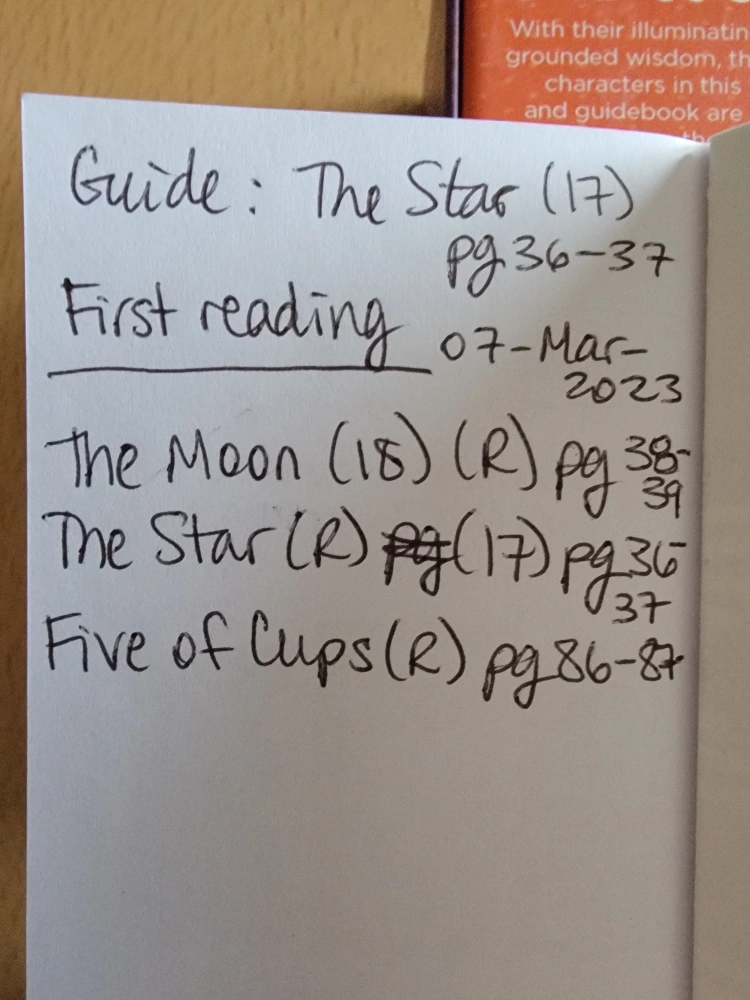 With their illuminatin
grounded wisdom, th
characters in this
and guidebook are
Guide: The Star (17)
pg 36-37
First reading
07-Mar-
2023
The Moon (18) (R) pg 38-
39
The Star (R) pg (17) pg 36-
37
Five of Cups (R) pg 86-87